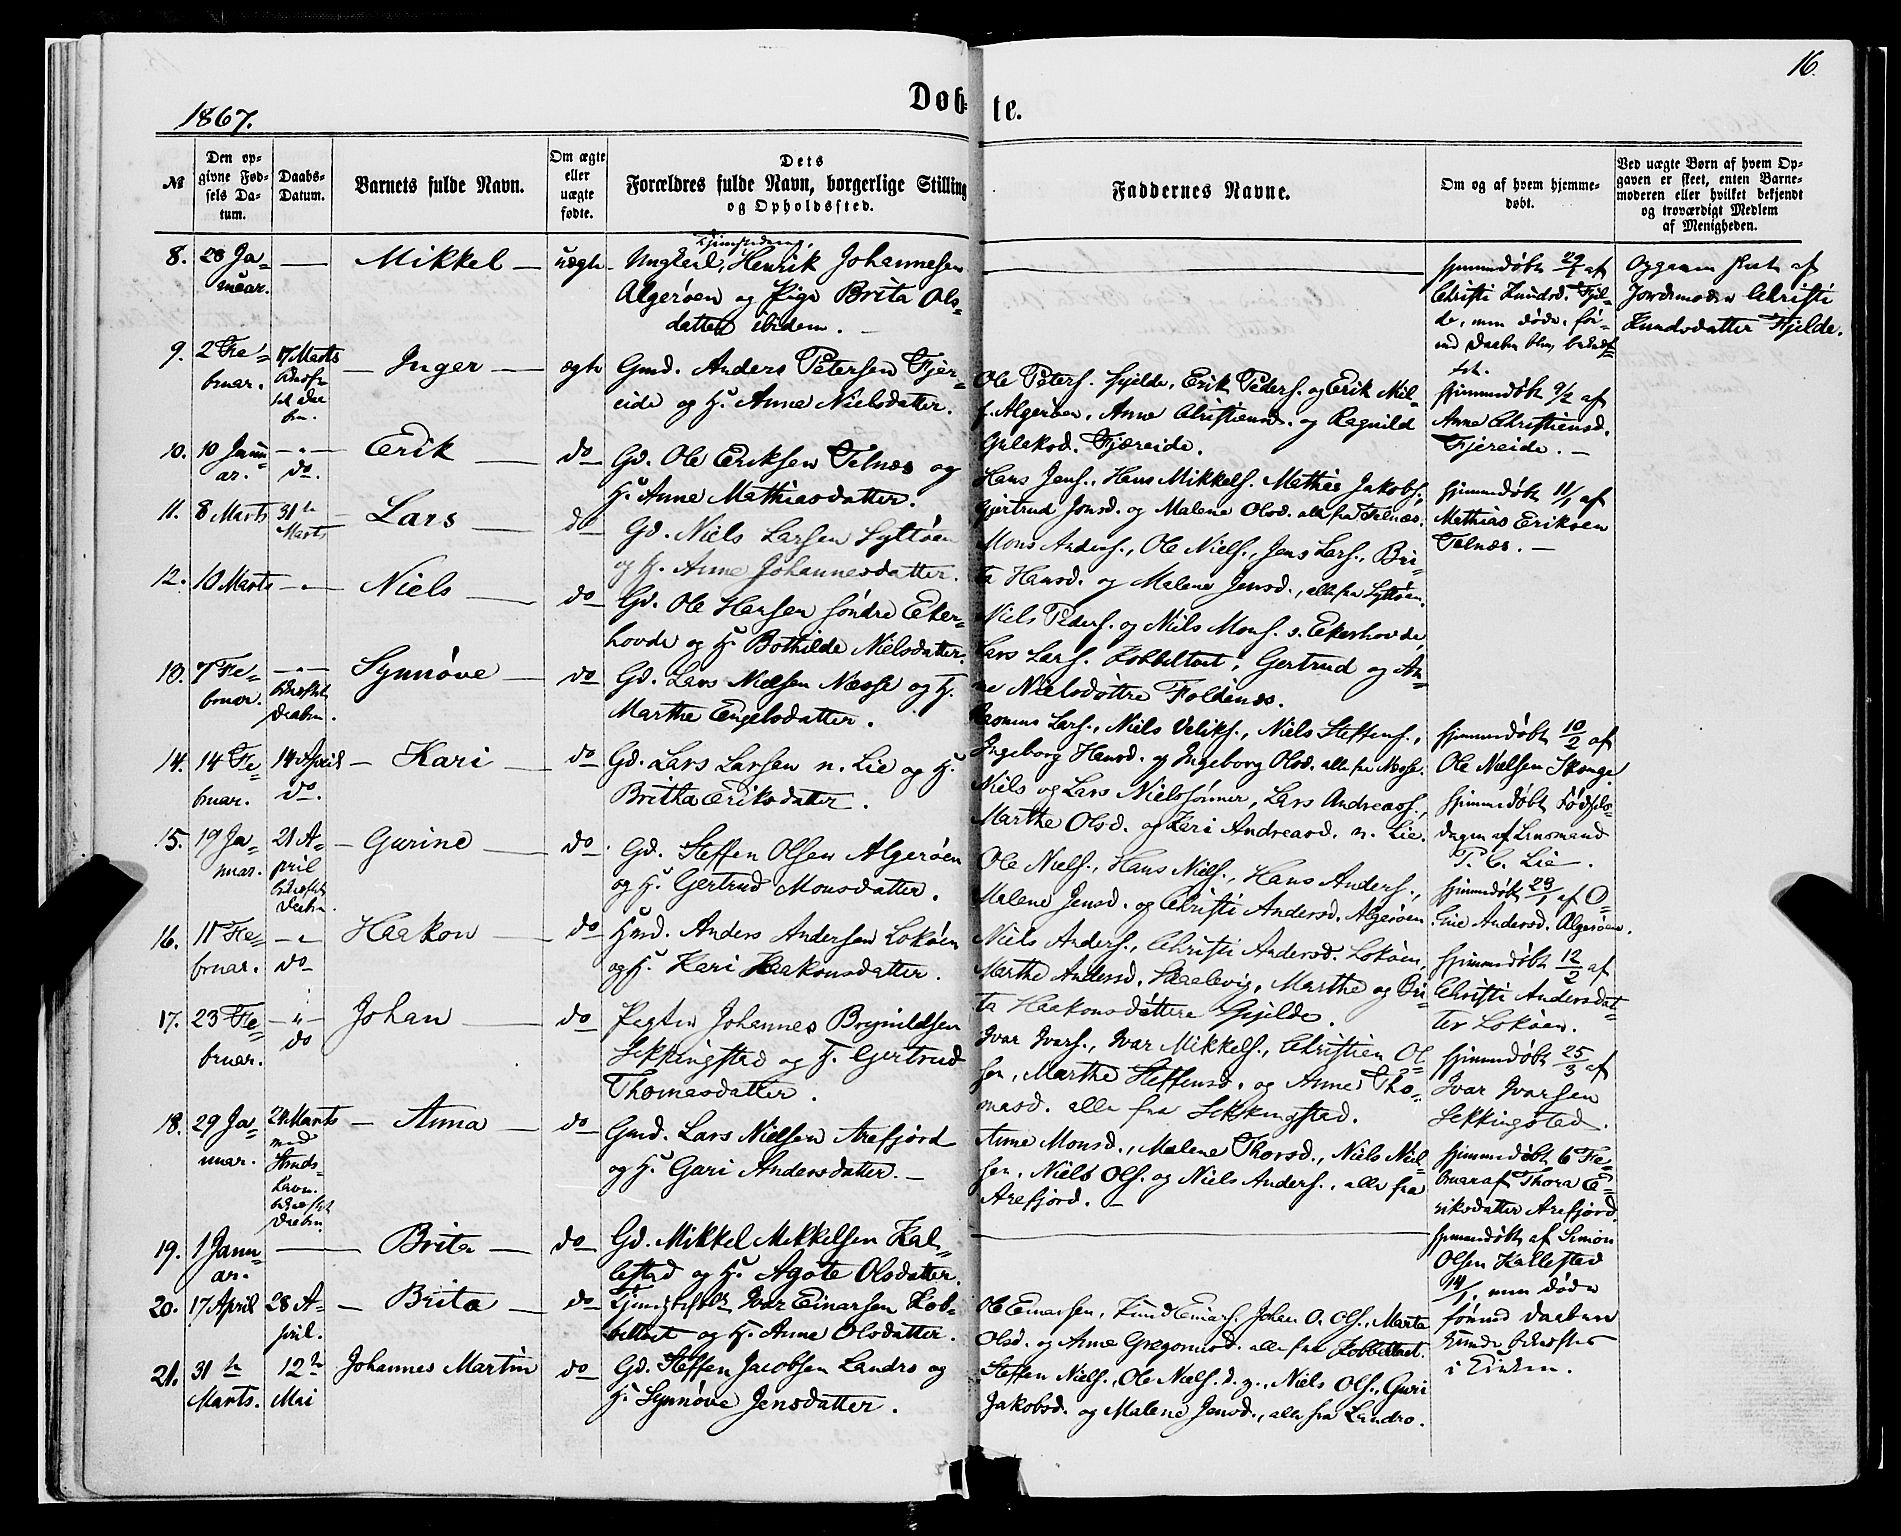 16.
1867.
Døbte.
№
Den opgivne Fødsels Datum.
Daabs-Datum.
Barnets fulde Navn.
Om ægte eller uægte fødte.
Dets Forældres fulde Navn, borgerlige Stilling og Opholdssted.
Faddernes Navne.
Om og af hvem hjemmedøbt.
Ved uægte Børn af hvem Opgaven er skeet, enten Barnemoderen eller hvilket bekjendt og troværdigt Medlem af Menigheden.
8. 28 Januar. — Mikkel — uægte
Ungkarl, Henrik Johannesen
Algerøen og Pige Brita Ols-
datter ibidem.
hjemmedøbt 29/1 af
Christi Knudsd. Fjel-
de, men døde, før-
end Daaben blev bekræf-
tet.
Opgaven skeet af
Jordemoder Christi
Knudsdatter Fjelde.
9. 2 Februar. 17 Marts — Inger — ægte
Gmd. Anders Petersen Fjer-
eide og H. Anne Nielsdatter.
Ole Peters. Fjelde, Erik Peders. og Erik Nil-
s. Algerøen, Anne Christiensd. og Ragnild
Fjæreide.
hjemmedøbt 9/2 af
Anne Christiensd.
Fjereide. —
10. 10 Januar. — do. Erik — do
Gd. Ole Eriksen Telnæs og
H. Anne Mathiasdatter.
Hans Jens., Hans Mikkels. Mathis Jakobs.,
Gjertrud Jonsd. og Malene Olsd. alle fra Telnæs.
hjemmedøbt 11/1 af
Mathias Eriksen
Telnæs. —
11. 8 Marts 31te Marts — Lars — do
Gd. Niels Larsen Syltøen
og H. Anne Johannesdatter.
Mons Anders., Ole Niels., Jens Lars., Bri-
ta Hansd. og Malene Jensd., alle fra Syltøen.
12. 10 Marts — Niels — do
Gd. Ole Hansen søndre Eker-
hovde og H. Bothilde Nielsdatter.
Niels Peders. og Niels Mons. s. Ekerhovde,
Lars Lars. Kobbeltvet, Gertrud og An-
ne Nielsdøttre Foldnæs.
13. 7 Februar. — bekræftet Daaben. Synnøve — do
Gd. Lars Nielsen Næsse og H.
Marthe Engelsdatter.
Rasmus Lars., Niels Veliks., Niels Steffens.,
Ingeborg Hansd. og Ingeborg Olsd. alle fra Næsse.
hjemmedøbt 10/2 af
Ole Nielsen Skoge
14. 14 Februar. 14 April do. — Kari — do
Gd. Lars Larsen n. Lie og H.
Britha Eriksdatter.
Niels og Lars Nielssønner, Lars Andreass.,
Marthe Olsd. og Kari Andreasd. n. Lie.
hjemmedøbt Fødsels-
dagen af Lensmand
P. C. Lie.
15. 19 Januar. 21 April bekræftet Daaben. — Gurine — do
Gd. Steffen Olsen Algerøen
og H. Gertrud Monsdatter.
Ole Niels., Hans Niels., Hans Anders.,
Malene Jensd. og Christi Andersd. Algerøen
hjemmedøbt 23/1 af O-
line Andersd. Algerøen.
16. 11 Februar. — do Haakon — do
Husd. Anders Andersen Lokøen
og H. Kari Haakonsdatter.
Niels Anders., Christi Andersd. Lokøen,
Marthe Andersd. Skaalevig, Marthe og Bri-
ta Haakonsdøttre Gjelde.
hjemmedøbt 12/2 af
Christi Andersdat-
ter Lokøen.
17. 23 Februar. — do Johan — do
Pagter Johannes Brynildsen
Sekkingstad og H. Gertrud
Thomasdatter.
Ivar Ivars., Ivar Mikkels., Christien Ol-
sen, Marthe Steffensd. og Anne Tho-
masd. alle fra Sekkingstad.
hjemmedøbt 25/3 af
Ivar Ivarsen
Sekkingstad.
18. 29 Januar. 24 Marts bekræftet Daaben. — Anna — do
Gmd. Lars Nielsen Arefjord
og H. Guri Andersdatter. —
Anne Monsd., Malene Thorsd., Niels Niel-
sen, Niels Ols. og Niels Anders., alle fra
Arefjord. —
hjemmedøbt 6 Fe-
bruar af Thora E-
riksdatter Arefjord.
19. 1 Januar. — Brita — do
Gd. Mikkel Mikkelsen Kal-
lestad og H. Agate Olsdatter.
hjemmedøbt af Simon
Olsen Kallestad
14/1, men døde
førend Daaben
kunde bekræftes
i Kirken.
20. 17 April 28 April. — Brita — do
Ivar Einarsen Kob-
beltvet og H. Anne Olsdatter.
Ole Einarsen, Knud Einars., Johan O. Ols., Marta
Olsd. og Anne Gregoriusd. alle fra Kobbeltvet.
21. 31te Marts. 12te Mai Johannes Martin do
Gd. Steffen Jacobsen Landro og
H. Synnøve Jensdatter.
Steffen Niels., Ole Niels. d. y., Niels Ols., Guri
Jakobsd. og Malene Jensd., alle fra Landro.